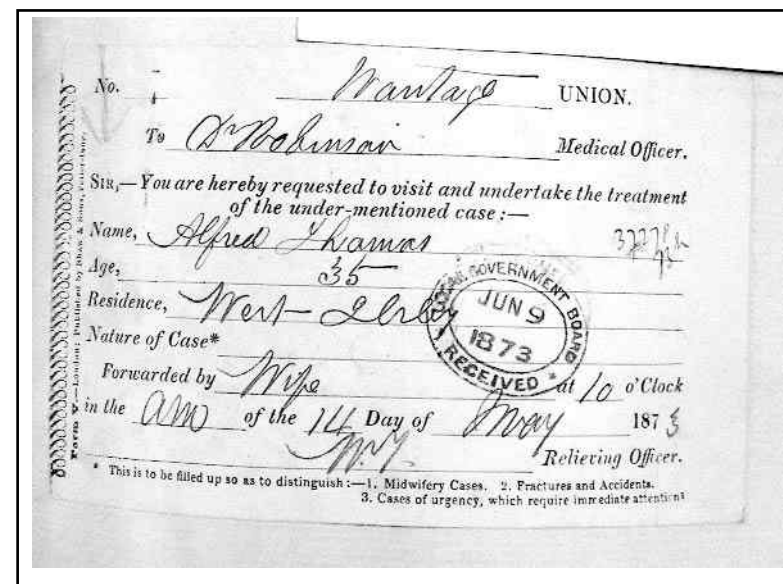 No. Wantage UNION.
To Dr Robinson Medical Officer.
SIR,—You are hereby requested to visit and undertake the treatment
of the under-mentioned case:—
Name, Alfred Thomas
Age, 35
Residence, West Ilsley
Nature of Case*
Forwarded by Wife at 10 o'Clock
in the am of the 14 Day of May 1873
Relieving Officer.
* This is to be filled up so as to distinguish:—1. Midwifery Cases. 2. Fractures and Accidents.
3. Cases of urgency, which require immediate attention
LOCAL GOVERNMENT BOARD
JUN 9
1873
* RECEIVED *
Form V.—London: Published by Shaw & Sons, Fetter-lane.